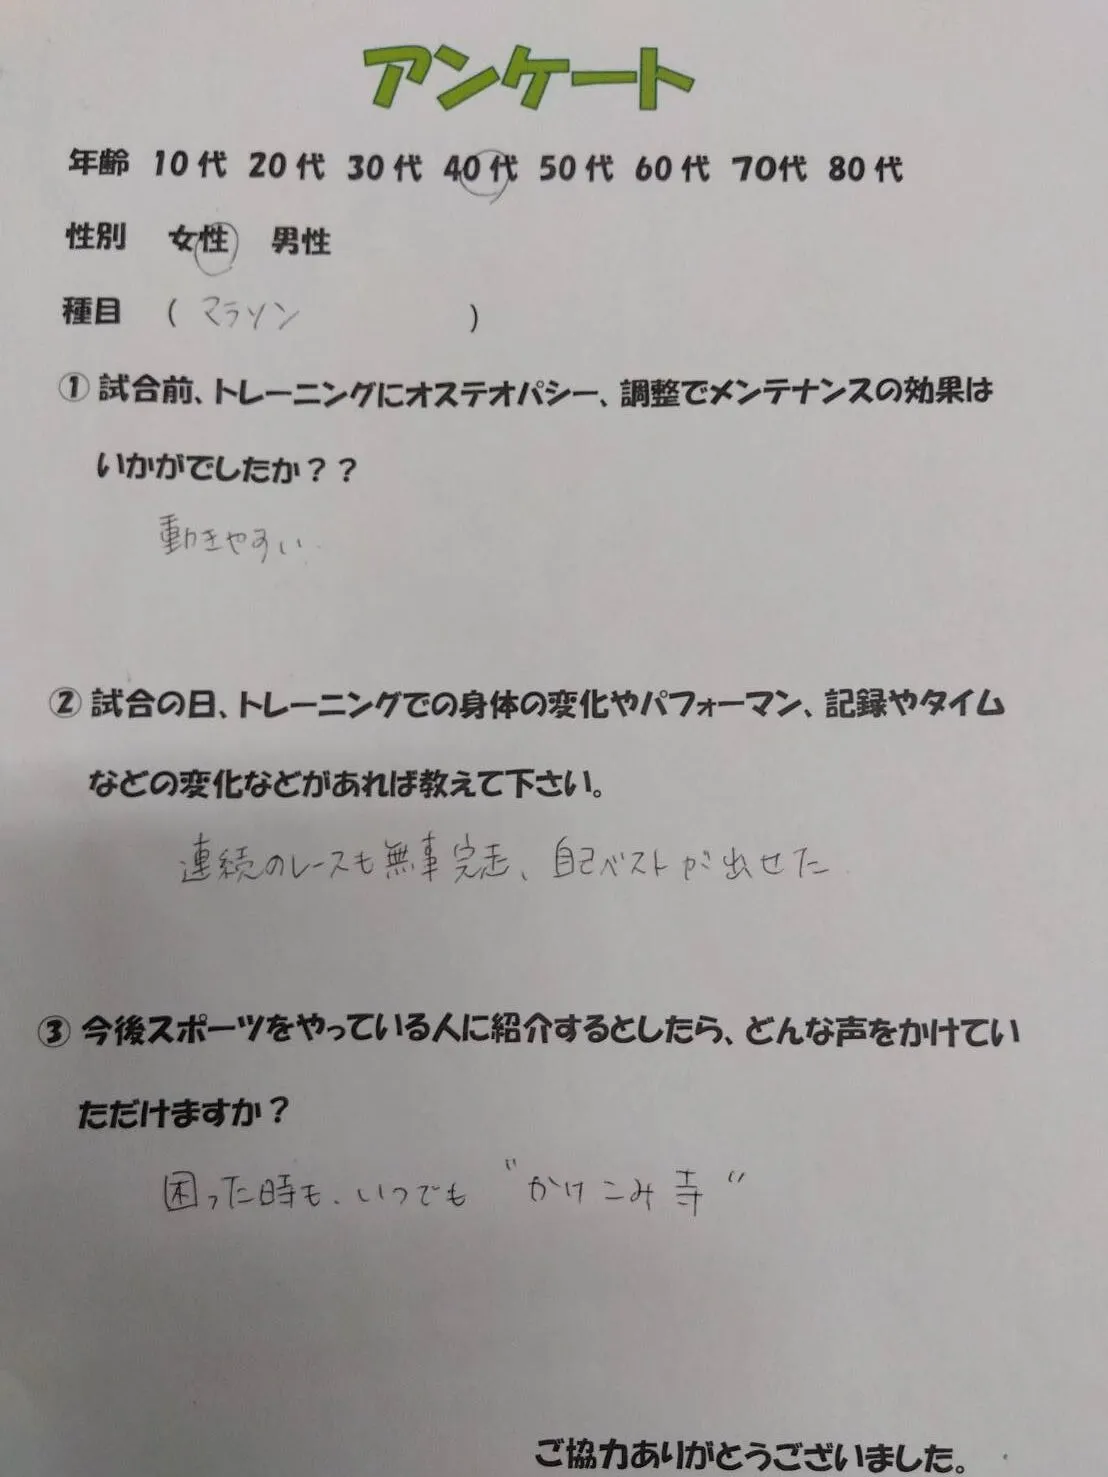 アンケート
年齢 10代 20代 30代 40代 50代 60代 70代 80代
性別 女性 男性
種目 ( マラソン )
① 試合前、トレーニングにオステオパシー、調整でメンテナンスの効果は
いかがでしたか？？
動きやすい.
② 試合の日、トレーニングでの身体の変化やパフォーマン、記録やタイム
などの変化などがあれば教えて下さい。
連続のレースも無事完走、自己ベストが出せた
③ 今後スポーツをやっている人に紹介するとしたら、どんな声をかけてい
ただけますか？
困った時も、いつでも "かけこみ寺"
ご協力ありがとうございました。